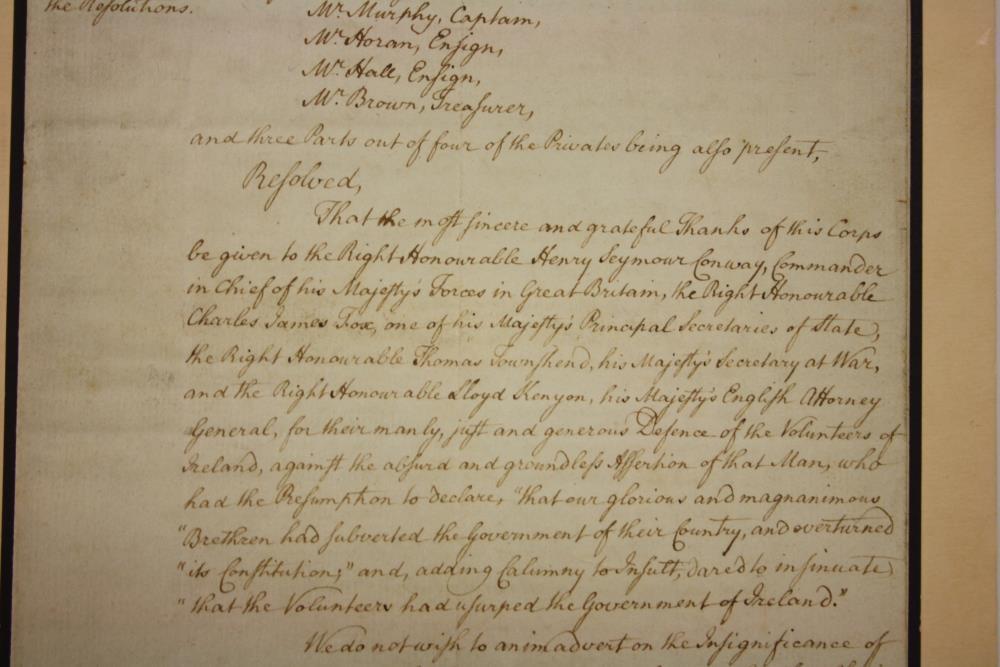 the Resolutions.
Mr. Murphy, Captain,
Mr. Horan, Ensign,
Mr. Hall, Ensign,
Mr. Brown, Treasurer,
and three Parts out of four of the Privates being also present,
Resolved,
That the most sincere and grateful Thanks of this Corps
be given to the Right Honourable Henry Seymour Conway, Commander
in Chief of his Majesty's Forces in Great Britain, the Right Honourable
Charles James Fox, one of his Majesty's Principal Secretaries of State,
the Right Honourable Thomas Townshend, his Majesty's Secretary at War,
and the Right Honourable Lloyd Kenyon, his Majesty's English Attorney
General, for their manly, just and generous Defence of the Volunteers of
Ireland, against the absurd and groundless Assertion of that Man, who
had the Resumption to declare, "that our glorious and magnanimous
"Brethren had subverted the Government of their Country, and overturned
"its Constitution;" and, adding Calumny to Insult, dared to insinuate
"that the Volunteers had usurped the Government of Ireland."
We do not wish to animadvert on the Insignificance of